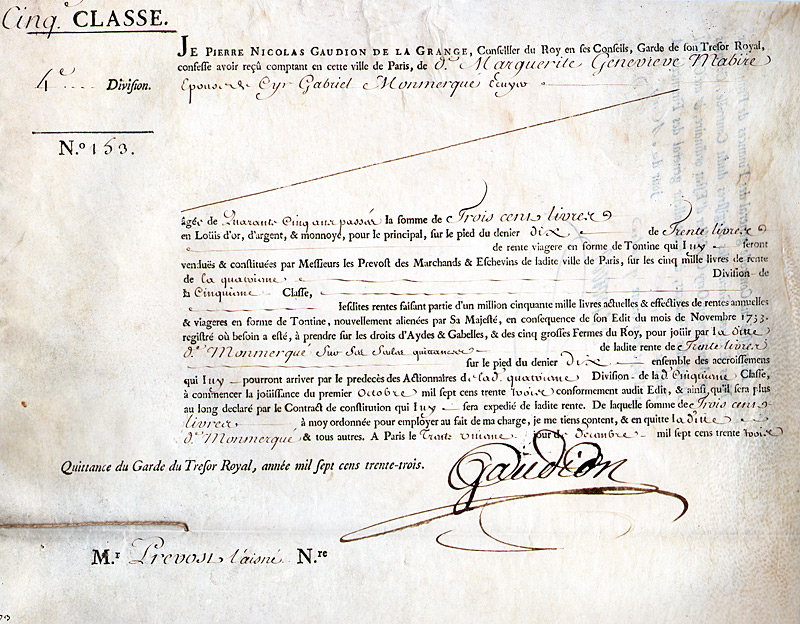 Cinq. CLASSE.
4.e .... Division.
N.º 153.
JE PIERRE NICOLAS GAUDION DE LA GRANGE, Conseiller du Roy en ses Conseils, Garde de son Tresor Royal,
confesse avoir reçû comptant en cette ville de Paris, de d.e Marguerite Genevieve Mabire
Epouse de Cyr Gabriel Monmerqué Ecuyer
âgée de Quarante Cinq ans passez la somme de Trois cent livres
en Loüis d'or, d'argent, & monnoye, pour le principal, sur le pied du denier dix de Trente livres
de rente viagere en forme de Tontine qui luy seront
venduës & constituées par Messieurs les Prevost des Marchands & Eschevins de ladite ville de Paris, sur les cinq mille livres de rente
de la quatrieme Division de
la Cinquieme Classe,
lesdites rentes faisant partie d'un million cinquante mille livres actuelles & effectives de rentes annuelles
& viageres en forme de Tontine, nouvellement alienées par Sa Majesté, en consequence de son Edit du mois de Novembre 1733.
registré où besoin a esté, à prendre sur les droits d'Aydes & Gabelles, & des cinq grosses Fermes du Roy, pour joüir par la ditte
d.e Monmerqué Sur Ses Seules quittances de ladite rente de Trente livres
sur le pied du denier dix ensemble des accroissemens
qui luy pourront arriver par le predecès des Actionnaires de lad. quatrieme Division de la d. Cinquieme Classe,
à commencer la joüissance du premier Octobre mil sept cens trente trois conformement audit Edit, & ainsi qu'il sera plus
au long declaré par le Contract de constitution qui luy sera expedié de ladite rente. De laquelle somme de Trois cens
livres à moy ordonnée pour employer au fait de ma charge, je me tiens content, & en quitte la ditte
d.e Monmerqué & tous autres. A Paris le Trente unieme jour de decembre mil sept cens trente trois
Quittance du Garde du Tresor Royal, année mil sept cens trente-trois.
Gaudion
M.r Prevost l'aisné N.re